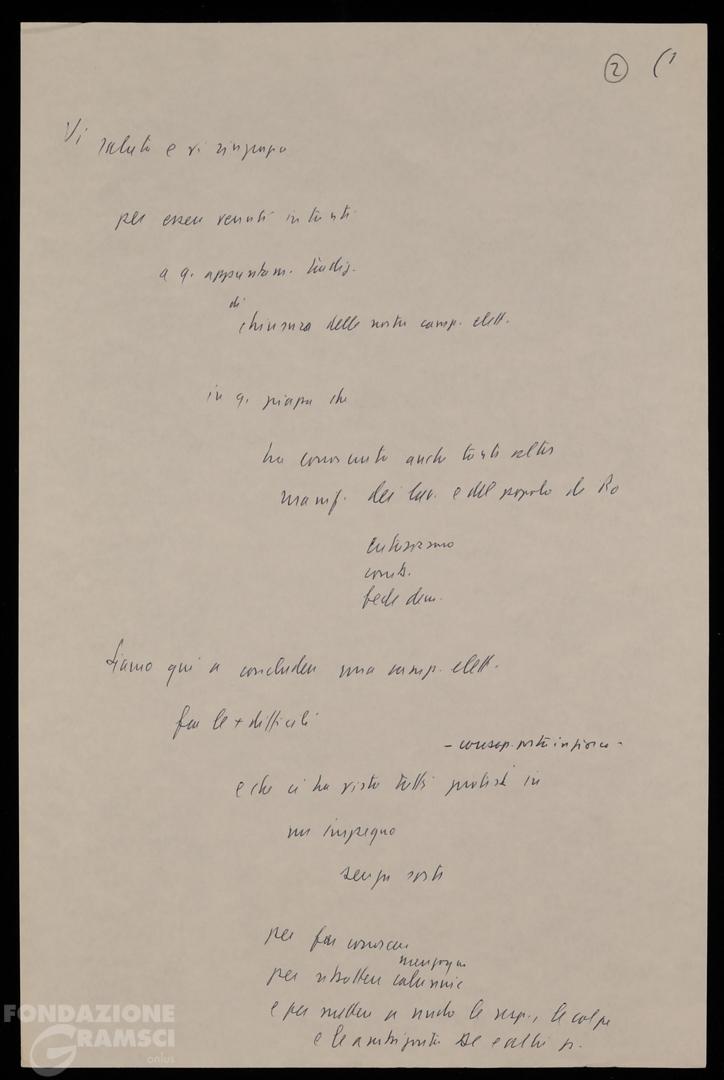 2 (1
Vi saluto e vi ringrazio
per essere venuti in tanti
a q. appuntam. tradiz.
di
chiusura della nostra camp. elett.
in q. piazza che
ha conosciuto anche tante altre
manif. dei lav. e del popolo di Ro
entusiasmo
comb.
fede dem.
Siamo qui a concludere una camp. elett.
fra le + difficili
- consap. posta in gioco -
e che ci ha visto tutti protesi in
un impegno
senza sosta
per far conoscere
menzogne
per ribattere calunnie
e per mettere a nudo le resp., le colpe
e le ambiguità e altri p.
FONDAZIONE
GRAMSCI
onlus